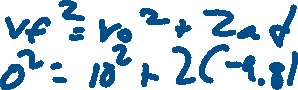 vf² = vo² + 2ad
0² = 10² + 2(-9.8)